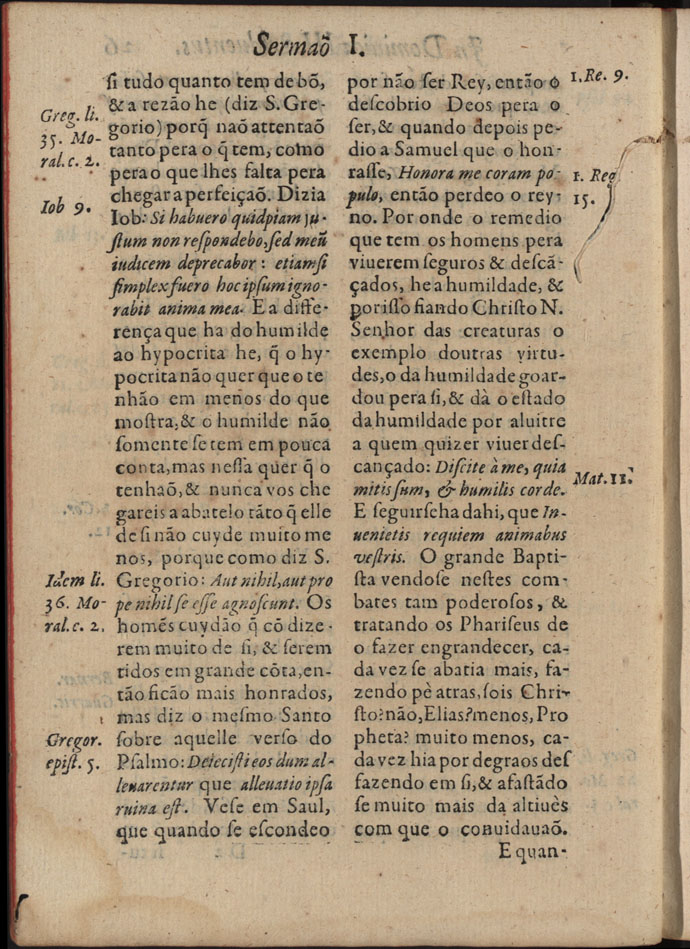 Sermaõ I.
si tudo quanto tem de bõ,
& a rezão he (diz S. Gre-
gorio) porq̃ naõ attentaõ
tanto pera o q̃ tem, como
pera o que lhes falta pera
chegar a perfeiçaõ. Dizia
Iob: Si habuero quidpiam ju-
stum non respondebo, sed meũ
iudicem deprecabor: etiamsi
simplex fuero hoc ipsum igno-
rabit anima mea. E a diffe-
rença que ha do humilde
ao hypocrita he, q̃ o hy-
pocrita não quer que o te
nhão em menos do que
mostra, & o humilde não
somente se tem em pouca
conta, mas nessa quer q̃ o
tenhaõ, & nunca vos che
gareis a abatelo tãto q̃ elle
de si não cuyde muito me
nos, porque como diz S.
Gregorio: Aut nihil, aut pro
pe nihil se esse agnoscunt. Os
homẽs cuydão q̃ cõ dize-
rem muito de si, & serem
tidos em grande cõta, en-
tão ficão mais honrados,
mas diz o mesmo Santo
sobre aquelle verso do
Psalmo: Deiecisti eos dum al-
leuarentur que alleuatio ipsa
ruina est. Vese em Saul,
que quando se escondeo
Greg. li.
35. Mo-
ral. c. 2.
Iob 9.
Idem li.
36. Mo-
ral. c. 2.
Gregor.
epist. 5.
por não ser Rey, então o
descobrio Deos pera o
ser, & quando depois pe-
dio a Samuel que o hon-
rasse, Honora me coram po-
pulo, então perdeo o rey-
no. Por onde o remedio
que tem os homens pera
viuerem seguros & descã-
çados, he a humildade, &
por isso fiando Christo N.
Senhor das creaturas o
exemplo doutras virtu-
des, o da humildade goar-
dou pera si, & dà o estado
da humildade por aluitre
a quem quizer viuer des-
cançado: Discite à me, quia
mitis sum, & humilis corde.
E seguirseha dahi, que In-
uenietis requiem animabus
vestris. O grande Bapti-
sta vendose nestes com-
bates tam poderosos, &
tratando os Phariseus de
o fazer engrandecer, ca-
da vez se abatia mais, fa-
zendo pè atras, sois Chri-
sto? não, Elias? menos, Pro
pheta? muito menos, ca-
da vez hia por degraos des
fazendo em si, & afastãdo
se muito mais da altiuès
com que o conuidauaõ.
E quan-
1. Re. 9.
1. Reg
15.
Mat. 11.